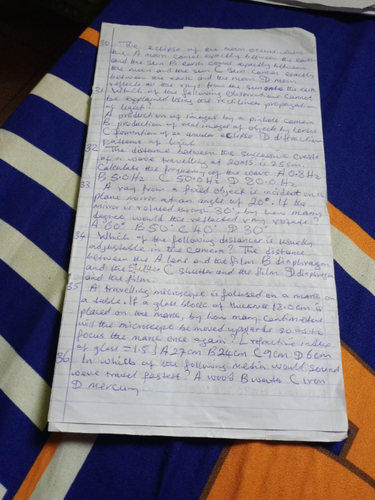 30. The eclipse of the moon occurs when
the A moon comes exactly between the earth
and the sun B earth comes exactly between
the moon and the sun C Sun comes exactly
between the earth and the moon D moon
reflects all the rays from the sun onto the earth
31. Which of the following observations cannot
be explained using the rectilinear propagation
of light?
A production of images by a pinhole camera
B production of real images of objects by lenses
C formation of an annular eclipse D diffraction
patterns of light
32. The distance between the successive crests
of a wave travelling at 20ms is 25cm.
Calculate the frequency of the wave A 0.8Hz
B 5.0Hz C 50.0Hz D 80.0Hz
33 A ray from a fixed object is incident on a
plane mirror at an angle of 20°. If the
mirror is rotated through 30°, by how many
degree would the reflected ray rotate?
A 60° B 50° C 40° D 30°
34. Which of the following distances is usually
adjustable in the camera? The distance
between the A lens and the film B diaphragm
and the shutter C shutter and the film D diaphragm
and the film
35 A travelling microscope is focused on a mark on
a table. If a glass block of thickness 18.0cm is
placed on the mark, by how many centimetres
will the microscope be moved upwards so as to
focus the mark once again? [refractive index
of glass = 1.5] A 27cm B 24cm C 9cm D 6cm
36 In which of the following media would sound
wave travel fastest? A wood B water C iron
D Mercury